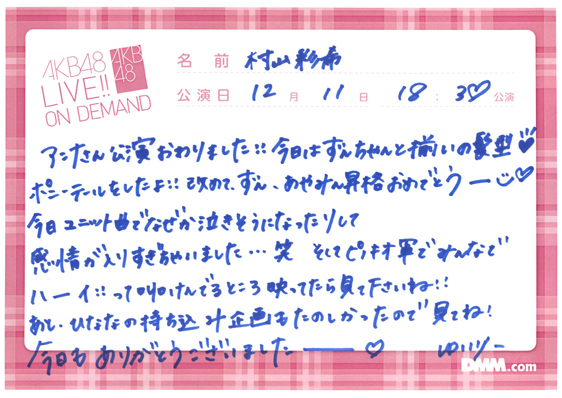 AKB48
LIVE!!
ON DEMAND
AKB
48
名前 村山彩希
公演日 12月 11日 18:30 公演
アンナさん公演おわりました!! 今日はずんちゃんと揃いの髪型
ポニーテールをしたよ!! 改めて、ずん、あやみん昇格おめでとうー
今日ユニット曲でなぜか泣きそうになったりして
感情が入りすぎちゃいました…笑 そしてピノキオ軍でみんなで
ハーイ!! って叫けんでるところ映ってたら見て下さいね!!
あと、ひななの持ち込み企画もたのしかったので見てね!
今日もありがとうございましたー ゆいりー
DMM.com